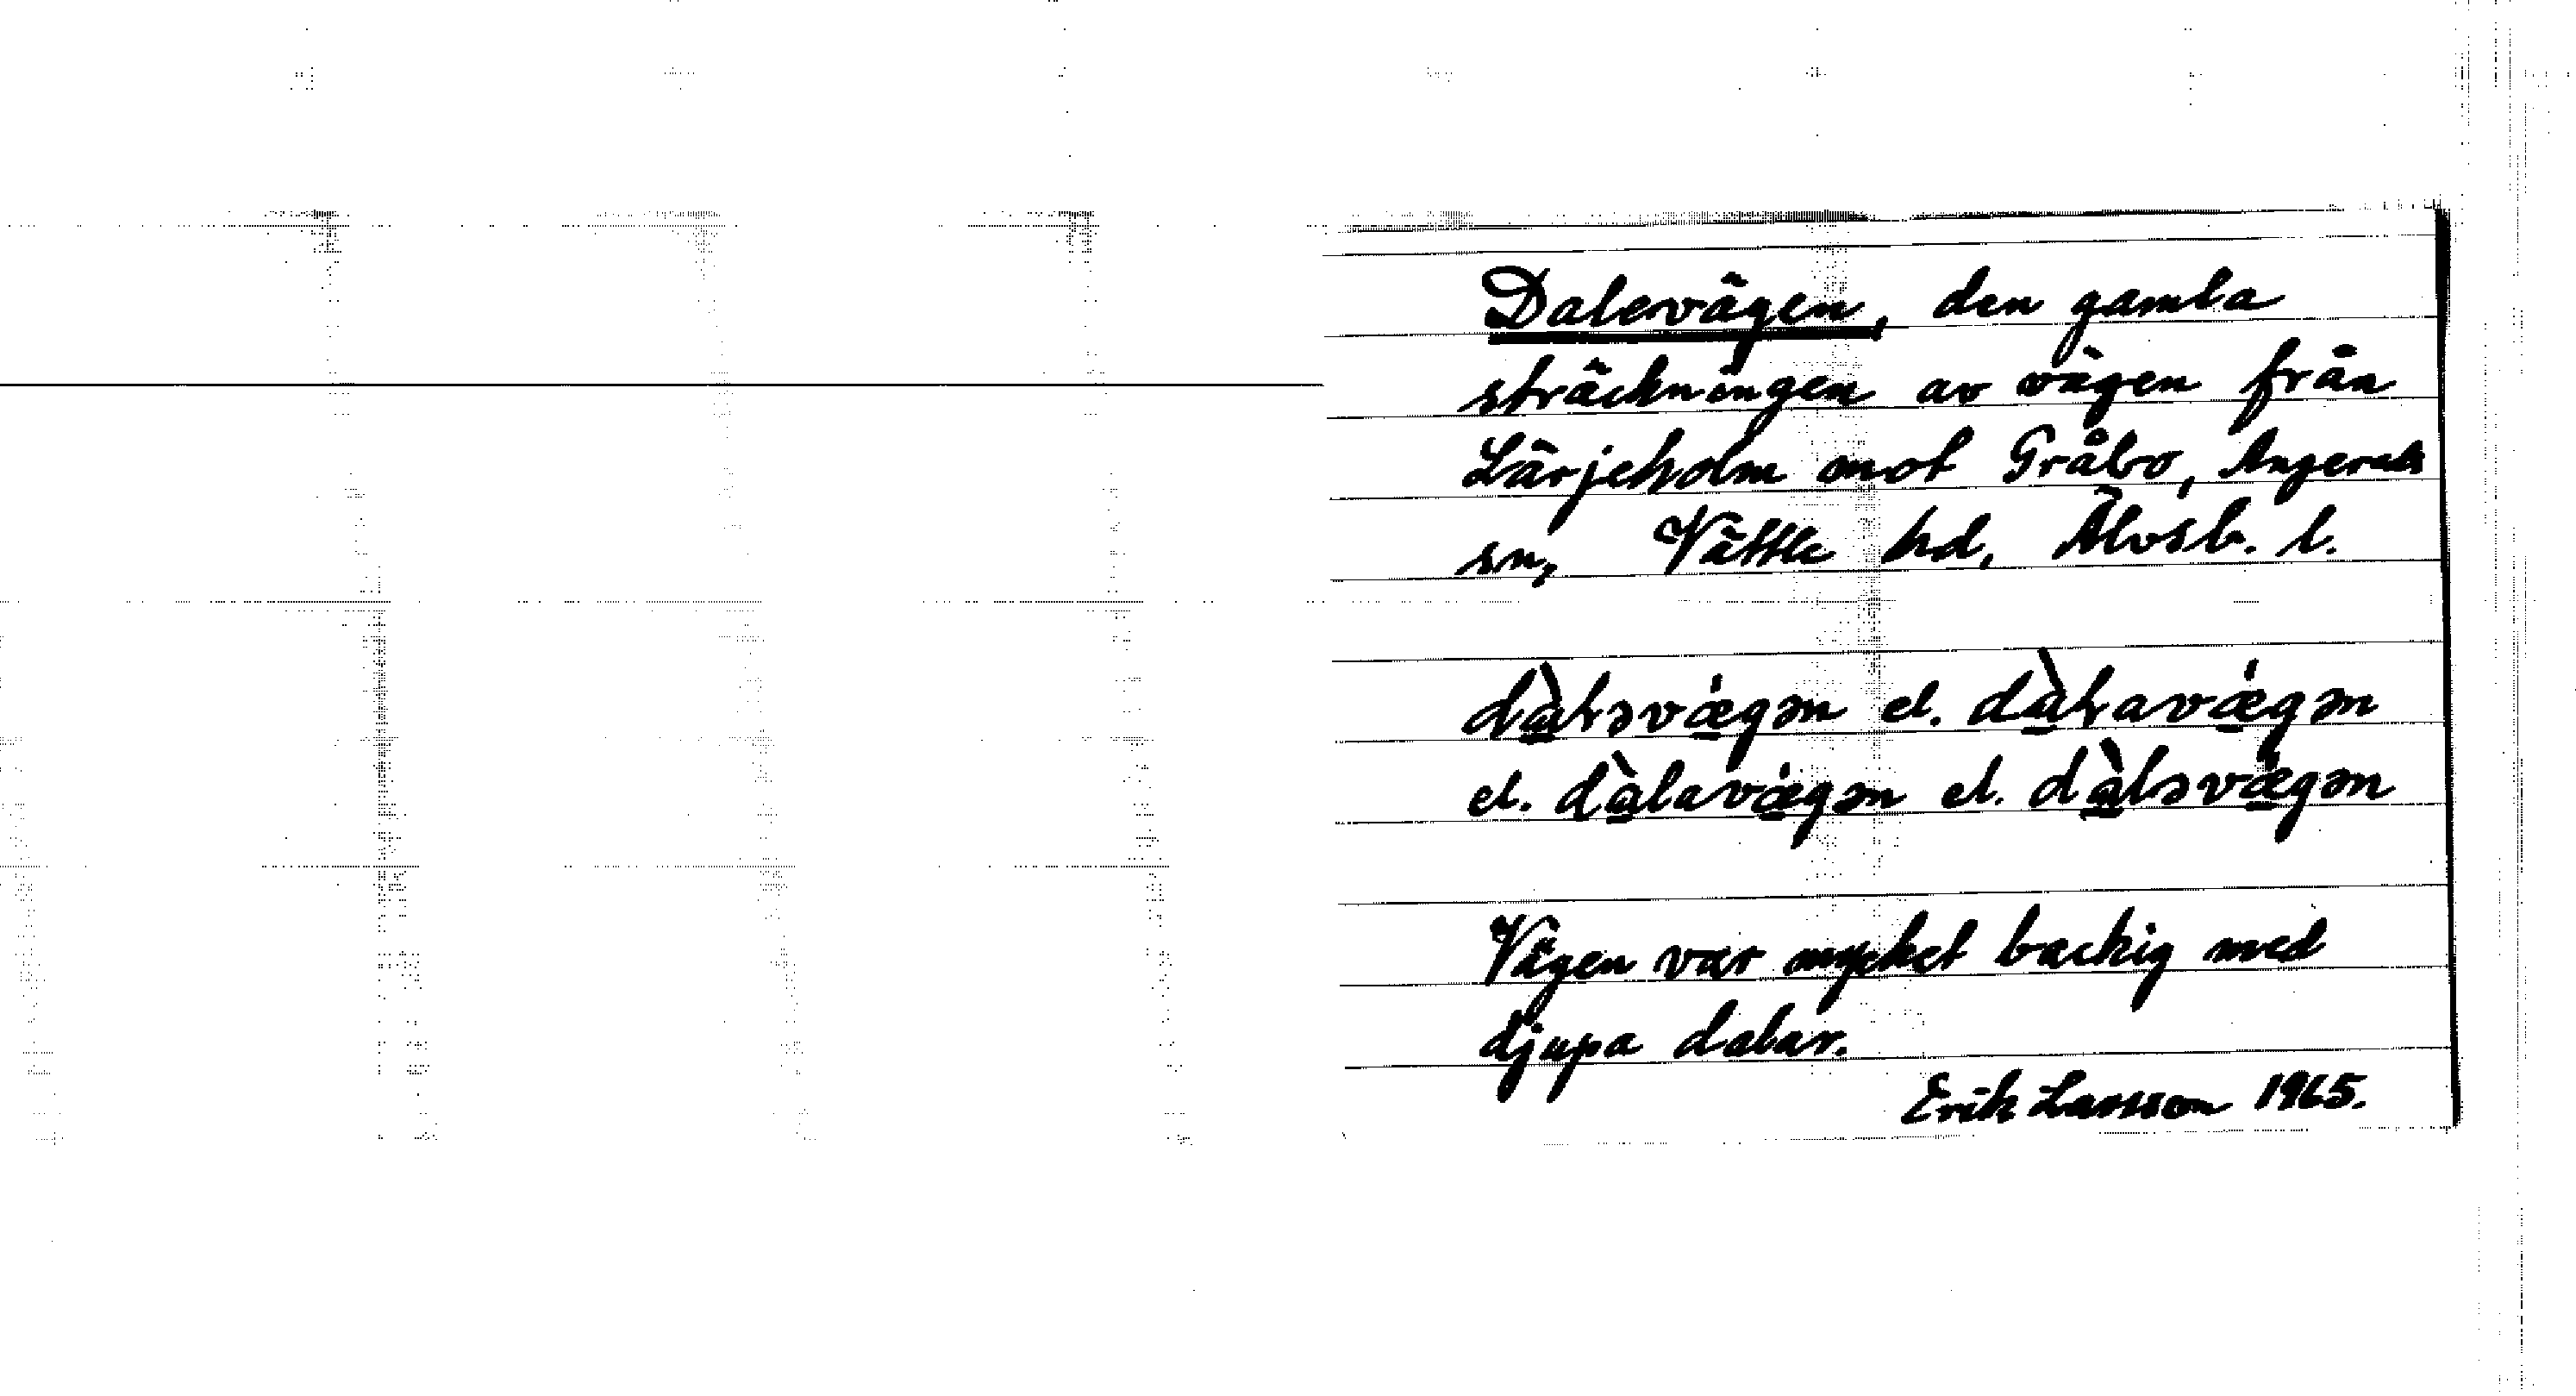 Dalevägen, den gamla
sträckningen av vägen från
Lärjeholm mot Gråbo, Angereds
sn, Vättle hd, Älvsb. l.
dàɽəvæ̀gən el. dàɽavæ̀gən
el. dàlavæ̀gən el. dàləvæ̀gən
Vägen var mycket backig med
djupa dalar.
Erik Larsson 1965.